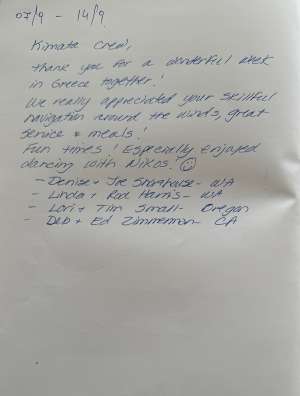 07/9 - 14/9
Kimata Crew,
thank you for a wonderful week
in Greece together!
We really appreciated your skillful
navigation around the winds, great
service & meals!
Fun times! Especially enjoyed
dancing with Nikos! ☺
- Denise + Joe - WA
- Linda + Rod Harris - WA
- Lori + Tim Small - Oregon
- Deb + Ed Zimmerman - CA